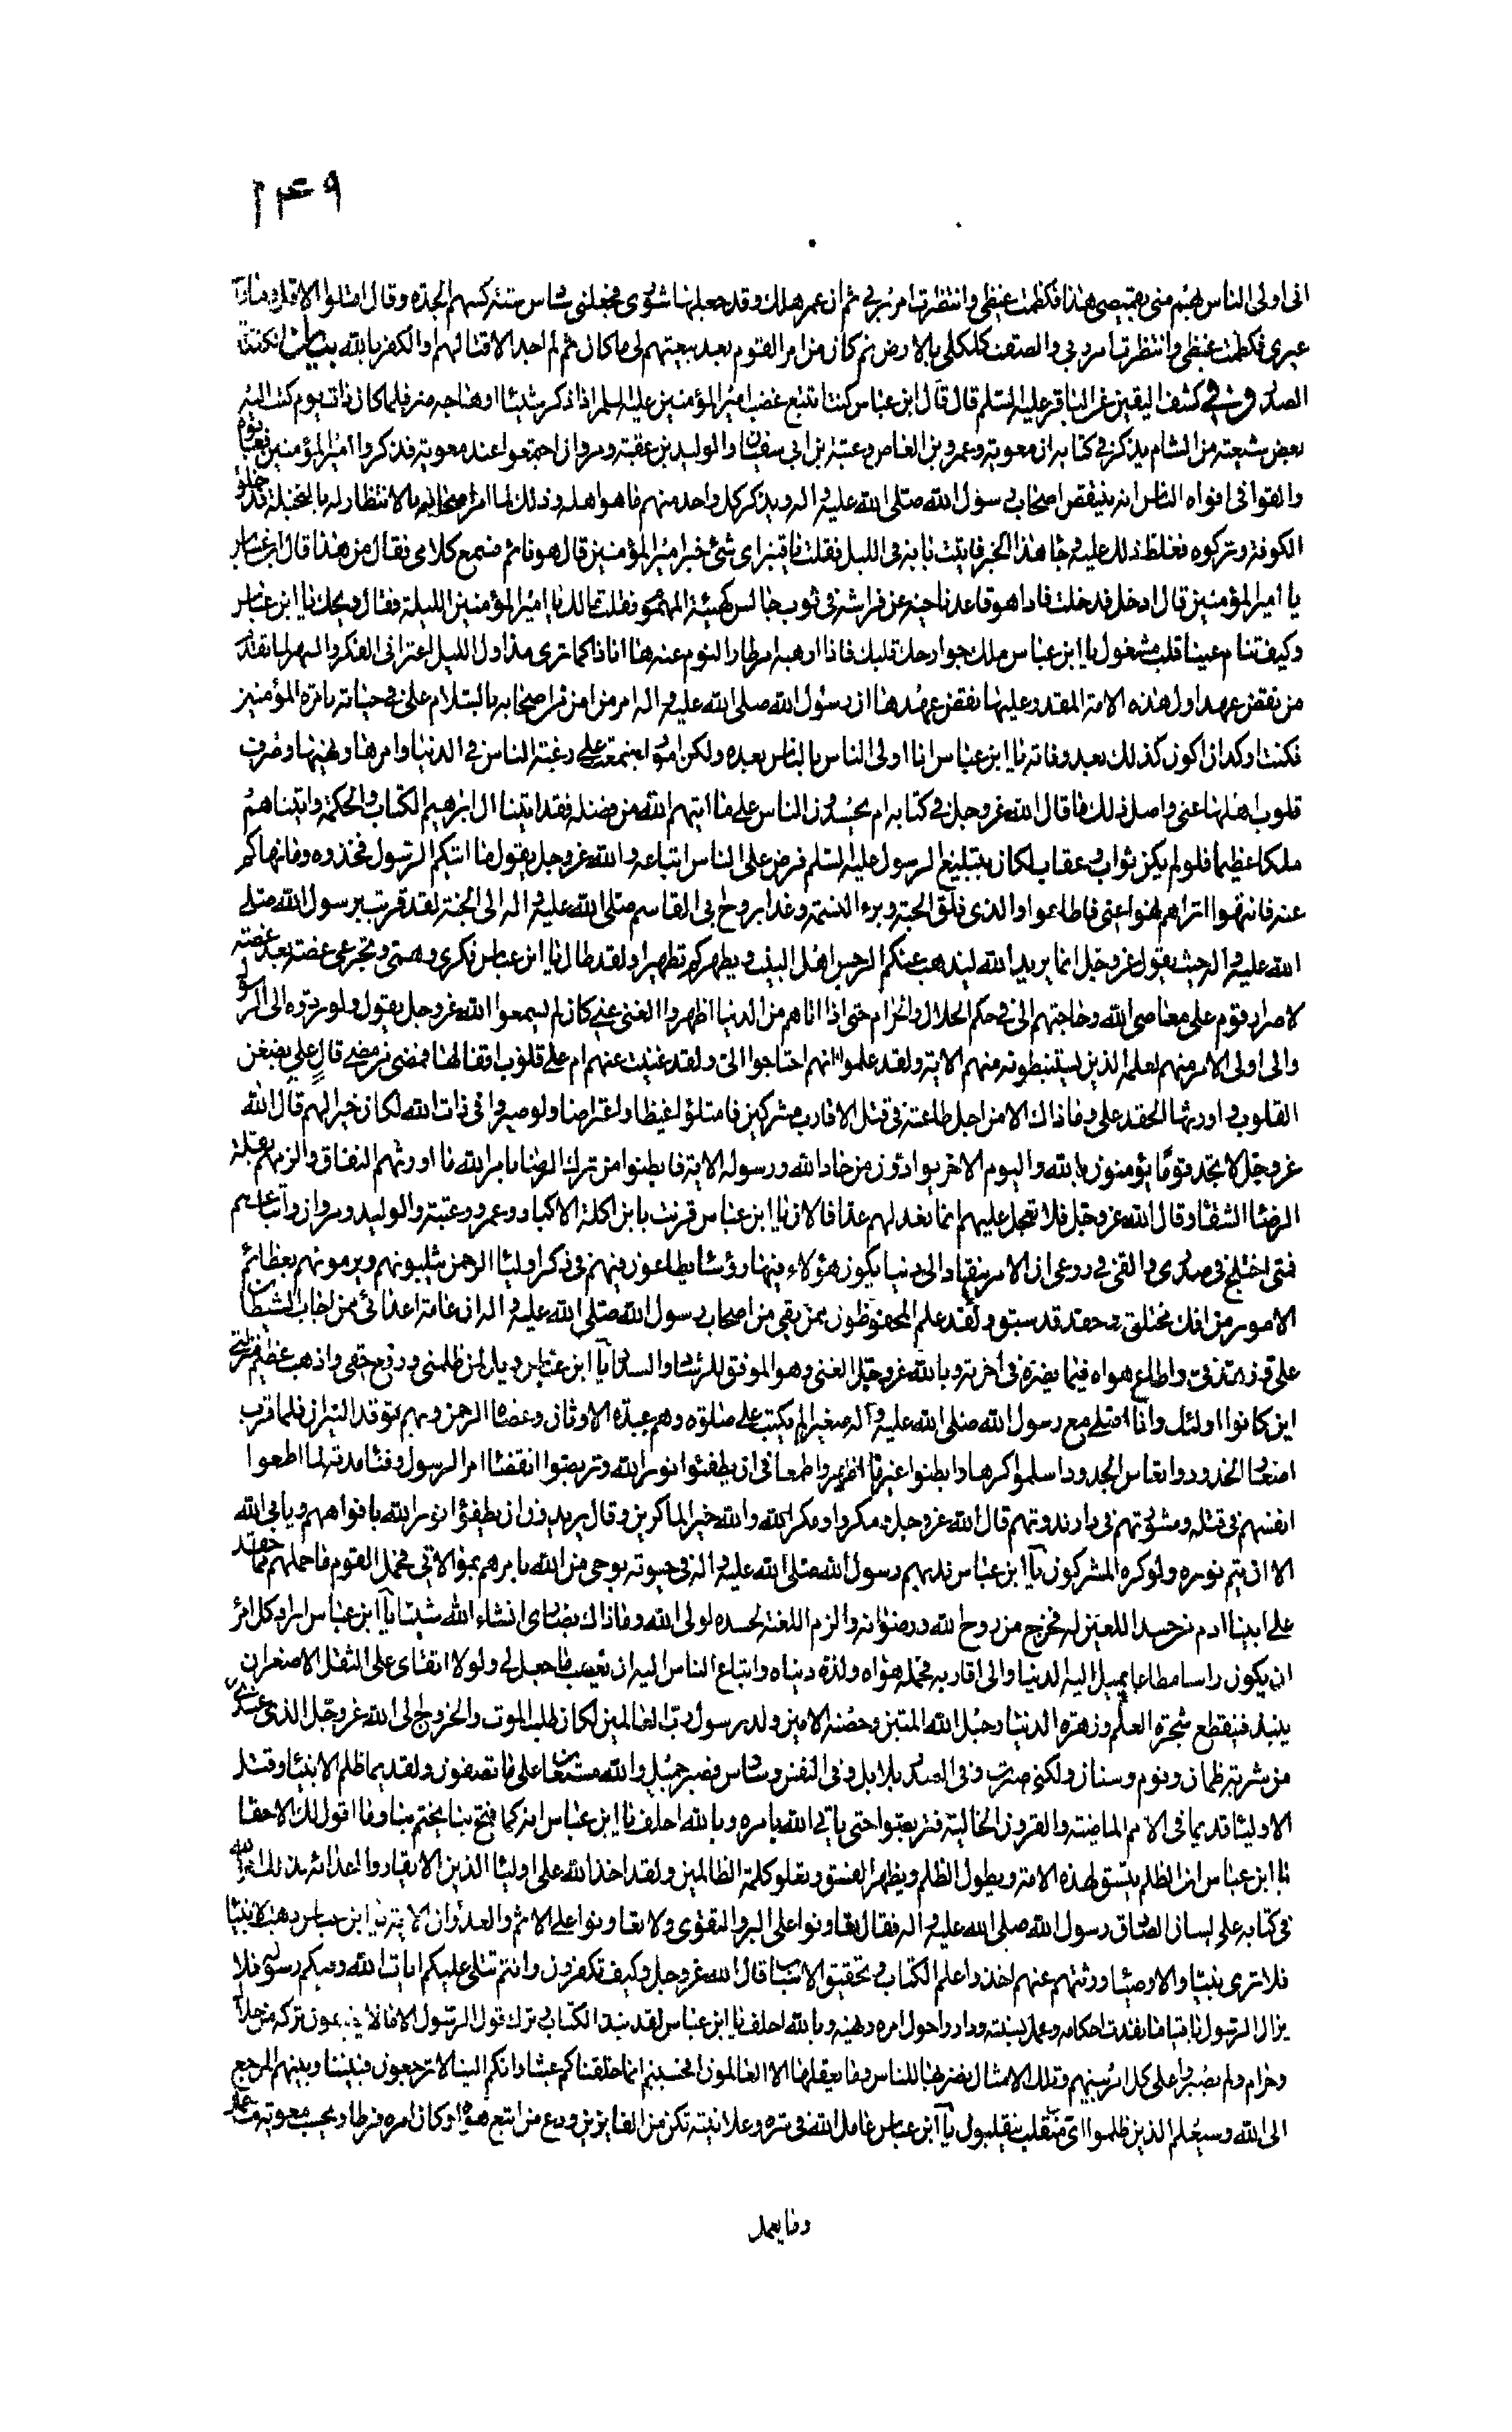 ١٤٩
انى اولى الناس بهم منى بقميصى هذا فكظمت غيظى وانتظرت امر ربى ثم ان عمر هلك وقد جعلها شورى فجعلنى سادس ستة كسهم الجدة وقال اقتلوا الاقل وما اراد
غيرى فكظمت غيظى وانتظرت امر ربى والصقت كلكلى بالارض ثم كان من امر القوم بعد بيعتهم لى ما كان ثم لم اجد الا قتالهم او الكفر بالله
فى كشف اليقين عن الباقر عليه السلم قال قال ابن عباس كنت اتتبع غضب امير المؤمنين عليه السلم اذا ذكر شيئا او هاجه خبر فلما كان ذات يوم كتب اليه
بعض شيعته من الشام يذكر فى كتابه ان معوية وعمرو بن العاص وعتبة بن ابى سفيان والوليد بن عقبة ومروان اجتمعوا عند معوية فذكروا امير المؤمنين فعابوه
والقوا فى افواه الناس انه ينتقص اصحاب رسول الله صلى الله عليه واله ويذكر كل واحد منهم ما هو اهله وذلك لما امر اصحابه بالانتظار له بالنخيلة فدخلوا
الكوفة وتركوه فغلظ ذلك عليه وجاء هذا الخبر فاتيت بابه فى الليل فقلت يا قنبر اى شئ خبر امير المؤمنين قال هو نائم فسمع كلامى فقال من هذا قال ابن عباس
يا امير المؤمنين قال ادخل فدخلت فاذا هو قاعد ناحية عن فراشه فى ثوب جالس كهيئة المهموم فقلت مالك يا امير المؤمنين الليلة فقال ويحك يا ابن عباس
وكيف تنام عينا قلب مشغول يا ابن عباس ملك جوارحك قلبك فاذا ارهبه امر طار النوم عنه ها انا ذا كما ترى مذ اول الليل اعترانى الفكر والسهر لما تقدم
من نقض عهد اول هذه الامة المقدر عليها نقض عهدها ان رسول الله صلى الله عليه واله امر من امر من اصحابه بالسلام على فى حياته بامرة المؤمنين
فكنت اوكد ان اكون كذلك بعد وفاته يا ابن عباس انا اولى الناس بالناس بعده ولكن امور اجتمعت على رغبة الناس فى الدنيا وامرها ونهيها وصرف
قلوب اهلها عنى واصل ذلك ما قال الله عز وجل فى كتابه ام يحسدون الناس على ما اتيهم الله من فضله فقد اتينا ال ابرهيم الكتاب والحكمة واتيناهم
ملكا عظيما فلو لم يكن ثواب ولا عقاب لكان بتبليغ الرسول عليه السلم فرض على الناس اتباعه والله عز وجل يقول ما اتيكم الرسول فخذوه وما نهاكم
عنه فانتهوا اتراهم نهوا عنى فاطاعوا والذى فلق الحبة وبرء النسمة وغدا بروح ابى القاسم صلى الله عليه واله الى الجنة لقد قرنت برسول الله صلى
الله عليه واله حيث يقول عز وجل انما يريد الله ليذهب عنكم الرجس اهل البيت ويطهركم تطهيرا ولقد طال يا ابن عباس فكرى وهمى وتجرعى غصة بعد غصة
لامر او قوم على معاصى الله وحاجتهم الى فى حكم الحلال والحرام حتى اذا اتاهم من الدنيا اظهروا الغنى عنى كان لم يسمعوا الله عز وجل يقول ولو ردوه الى الرسول
والى اولى الامر منهم لعلمه الذين يستنبطونه منهم الاية ولقد علموا انهم احتاجوا الى ولقد غنيت عنهم ام على قلوب اقفالها فمضى من مضى قال على بضغن
القلوب واورثها الحقد على وما ذاك الا من اجل طاعته فى قتل الاقارب مشركين فامتلؤا غيظا واعتراضا ولو صبروا فى ذات الله لكان خيرا لهم قال الله
عز وجل لا تجد قوما يؤمنون بالله واليوم الاخر يوادون من حاد الله ورسوله الاية فابطنوا من ترك الرضا بامر الله ما اورثهم النفاق والزمهم بقلة
الرضا الشقاء وقال الله عز وجل فلا تعجل عليهم انما نعد لهم عدا فالان يا ابن عباس قرنت بابن اكلة الاكباد وعمرو وعتبة والوليد ومروان واتباعهم
فمتى اختلج فى صدرى والقى فى روعى ان الامر ينقاد الى دنيا يكون هؤلاء فيها رؤسا يطاعون فهم فى ذكر اولياء الرحمن يثلبونهم ويرمونهم بعظائم
الامور من افك مختلق وحقد قد سبق ولقد علم المحفوظون ممن بقى من اصحاب رسول الله صلى الله عليه واله ان عامة اعدائى من اجاب الشيطان
على وزهد الناس فى واطاع هواه فيما يضره فى اخرته وبالله عز وجل الغنى وهو الموفق للرشاد والسداد يا ابن عباس ويل لمن ظلمنى ودفع حقى واذهب عظيم منزلتى
اين كانوا اولئك وانا اصلى مع رسول الله صلى الله عليه واله صغيرا لم يكتب على صلوة وهم عبدة الاوثان وعصاة الرحمن وبهم توقد النيران فلما قرب
اصعار الخدود واتعاس الجدود اسلموا كرها وابطنوا غير ما اظهروا طمعا فى ان يطفئوا نور الله وتربصوا انقضاء امر الرسول وفناء مدته لما اطمعوا
انفسهم فى قتله ومشورتهم فى دار ندوتهم قال الله عز وجل ومكروا ومكر الله والله خير الماكرين وقال يريدون ان يطفئوا نور الله بافواههم ويابى الله
الا ان يتم نوره ولو كره المشركون يا ابن عباس ندبهم رسول الله صلى الله عليه واله فى حيوته بوحى من الله يامرهم بموالاتى فحمل القوم ما حملهم مما حقد
على ابينا ادم من حسد اللعين له فخرج من روح الله ورضوانه والزم اللعنة لحسده لولى الله وما ذاك بضارى انشاء الله شيئا يا ابن عباس اراد كل امرئ
ان يكون راسا مطاعا يميل اليه الدنيا والى اقاربه فحمله هواه ولذة دنياه واتباع الناس اليه ان يغصب ما جعل لى ولولا اتقائى على الثقل الاصغر ان
ينبد فينقطع شجرة العلم وزهرة الدنيا وحبل الله المتين وحصنه الامين ولد رسول رب العالمين لكان طلب الموت والخروج الى الله عز وجل الذ عندى
من شربة ظمان ونوم وسنان ولكنى صبرت وفى الصدر بلابل وفى النفس وساوس فصبر جميل والله مستعان على ما تصفون ولقديما ظلم الانبياء وقتل
الاولياء قديما فى الامم الماضية والقرون الخالية فتربصوا حتى ياتى الله بامره وبالله احلف يا ابن عباس انه كما فتح بنا يختم بنا وما اقول لك الا حقا
يا ابن عباس ان الظلم يتسق لهذه الامة ويطول الظلم ويظهر الفسق وتعلو كلمة الظالمين ولقد اخذ الله على اولياء الدين ان لا يقاروا اعدائه بذلك امر الله
فى كتابه على لسان الصادق رسول الله صلى الله عليه واله فقال تعاونوا على البر والتقوى ولا تعاونوا على الاثم والعدوان يا ابن عباس ذهب الانبياء
فلا ترى نبيا والاوصياء ورثتهم عنهم اخذوا علم الكتاب وتحقيق الاسباب قال الله عز وجل وكيف تكفرون وانتم تتلى عليكم ايات الله وفيكم رسوله فلا
يزال الرسول باقيا ما نفدت احكامه وعمل بسنته وداروا حول امره ونهيه وبالله احلف يا ابن عباس لقد نبذ الكتاب وترك قول الرسول الا ما لا يطيقون تركه من حلال
وحرام ولم يصبروا على كل امر نبيهم وتلك الامثال نضربها للناس وما يعقلها الا العالمون افحسبتم انما خلقناكم عبثا وانكم الينا لا ترجعون فبيننا وبينهم المرجع
الى الله وسيعلم الذين ظلموا اى منقلب ينقلبون يا ابن عباس عامل الله فى سره وعلانيته تكن من الفايزين ودع من اتبع هواه وكان امره فرطا ويحسب معوية ما عمل
وما يعمل